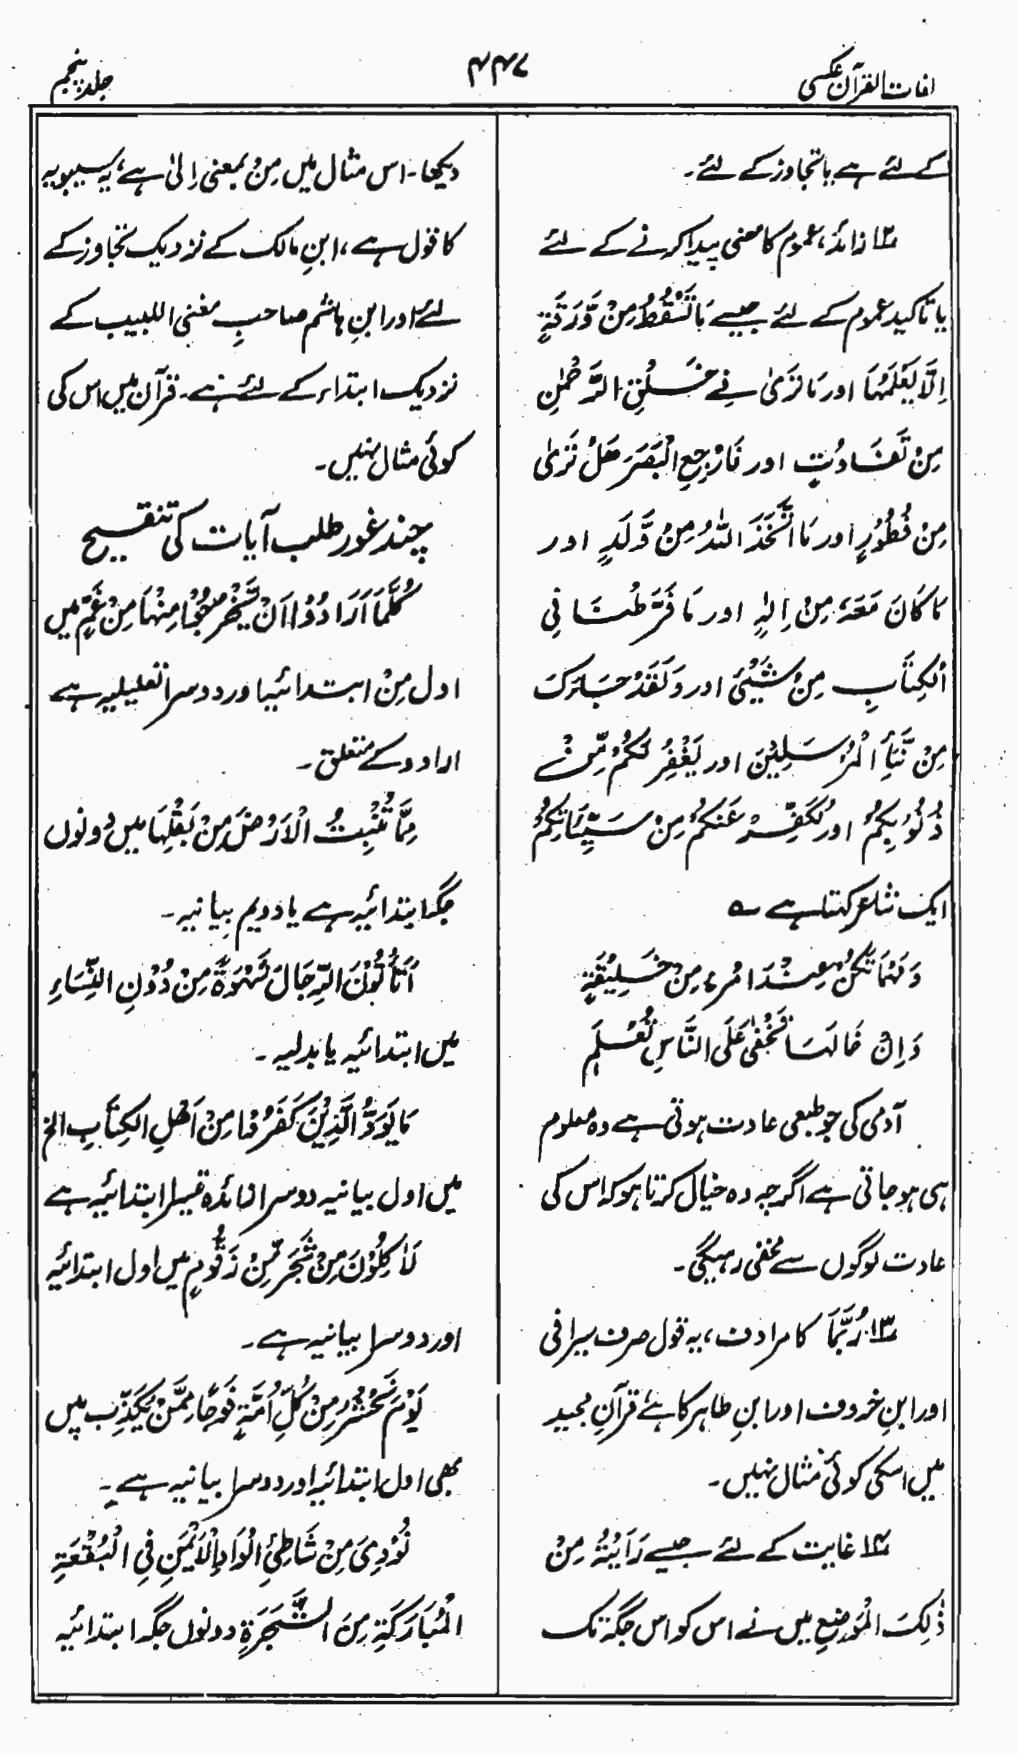 لغات القرآن عکسی
۴۴۷
جلد پنجم
کے لئے ہے یا تجاوز کے لئے۔
۱۲ زائد، عموم کا معنی پیدا کرنے کے لئے
یا تاکید عموم کے لئے جیسے مَا تَسْقُطُ مِنْ وَّرَقَةٍ
اِلَّا یَعْلَمُهَا اور مَا تَرٰی فِیْ خَلْقِ الرَّحْمٰنِ
مِنْ تَفَاوُتٍ اور فَارْجِعِ الْبَصَرَ هَلْ تَرٰی
مِنْ فُطُوْرٍ اور مَا اتَّخَذَ اللّٰهُ مِنْ وَّلَدٍ اور
مَا کَانَ مَعَهٗ مِنْ اِلٰهٍ اور مَا فَرَّطْنَا فِی
الْکِتَابِ مِنْ شَیْئٍ اور وَلَقَدْ جَاءَکَ
مِنْ نَّبَأِ الْمُرْسَلِیْنَ اور یَغْفِرْ لَکُمْ مِّنْ
ذُنُوْبِکُمْ اور نُکَفِّرْ عَنْکُمْ مِنْ سَیِّئَاتِکُمْ
ایک شاعر کہتا ہے ؎
وَمَهْمَا تَکُنْ عِنْدَ امْرِءٍ مِنْ خَلِیْقَةٍ
وَاِنْ خَالَهَا تَخْفٰی عَلَی النَّاسِ تُعْلَمِ
آدمی کی جو طبعی عادت ہوتی ہے وہ معلوم
ہی ہو جاتی ہے اگرچہ وہ خیال کرتا ہو کہ اس کی
عادت لوگوں سے مخفی رہیگی۔
۱۳ رُبَّمَا کا مرادف، یہ قول صرف سیرافی
اور ابنِ خروف اور ابنِ طاہر کا ہے قرآنِ مجید
میں اسکی کوئی مثال نہیں۔
۱۴ غایت کے لئے جیسے رَاَیْتُهٗ مِنْ
ذٰلِکَ الْمَوْضِعِ میں نے اس کو اس جگہ تک
دیکھا۔ اس مثال میں مِنْ بمعنی اِلیٰ ہے، یہ سیبویہ
کا قول ہے، ابنِ مالک کے نزدیک تجاوز کے
لئے اور ابنِ ہاشم صاحبِ مغنی اللبیب کے
نزدیک ابتداء کے لئے ہے۔ قرآن میں اس کی
کوئی مثال نہیں۔
چند غور طلب آیات کی تنقیح
کُلَّمَا اَرَادُوْا اَنْ یَّخْرُجُوْا مِنْهَا مِنْ غَمٍّ میں
اول مِنْ ابتدائیہ اور دوسرا تعلیلیہ ہے
ارادو کے متعلق۔
مِمَّا تُنْبِتُ الْاَرْضُ مِنْ بَقْلِهَا میں دونوں
جگہ ابتدائیہ ہے یا دویم بیانیہ۔
اَتَأْتُوْنَ الرِّجَالَ شَهْوَةً مِنْ دُوْنِ النِّسَاءِ
میں ابتدائیہ یا بدلیہ۔
مَا یَوَدُّ الَّذِیْنَ کَفَرُوْا مِنْ اَهْلِ الکِتَابِ الخ
میں اول بیانیہ دوسرا زائدہ تیسرا ابتدائیہ ہے
لَاٰکِلُوْنَ مِنْ شَجَرٍ مِّنْ زَقُّوْمٍ میں اول ابتدائیہ
اور دوسرا بیانیہ ہے۔
یَوْمَ نَحْشُرُ مِنْ کُلِّ اُمَّةٍ فَوْجًا مِمَّنْ یُکَذِّبُ میں
بھی اول ابتدائیہ اور دوسرا بیانیہ ہے۔
نُوْدِیَ مِنْ شَاطِئِ الْوَادِ الْاَیْمَنِ فِی الْبُقْعَةِ
الْمُبَارَکَةِ مِنَ الشَّجَرَةِ دونوں جگہ ابتدائیہ